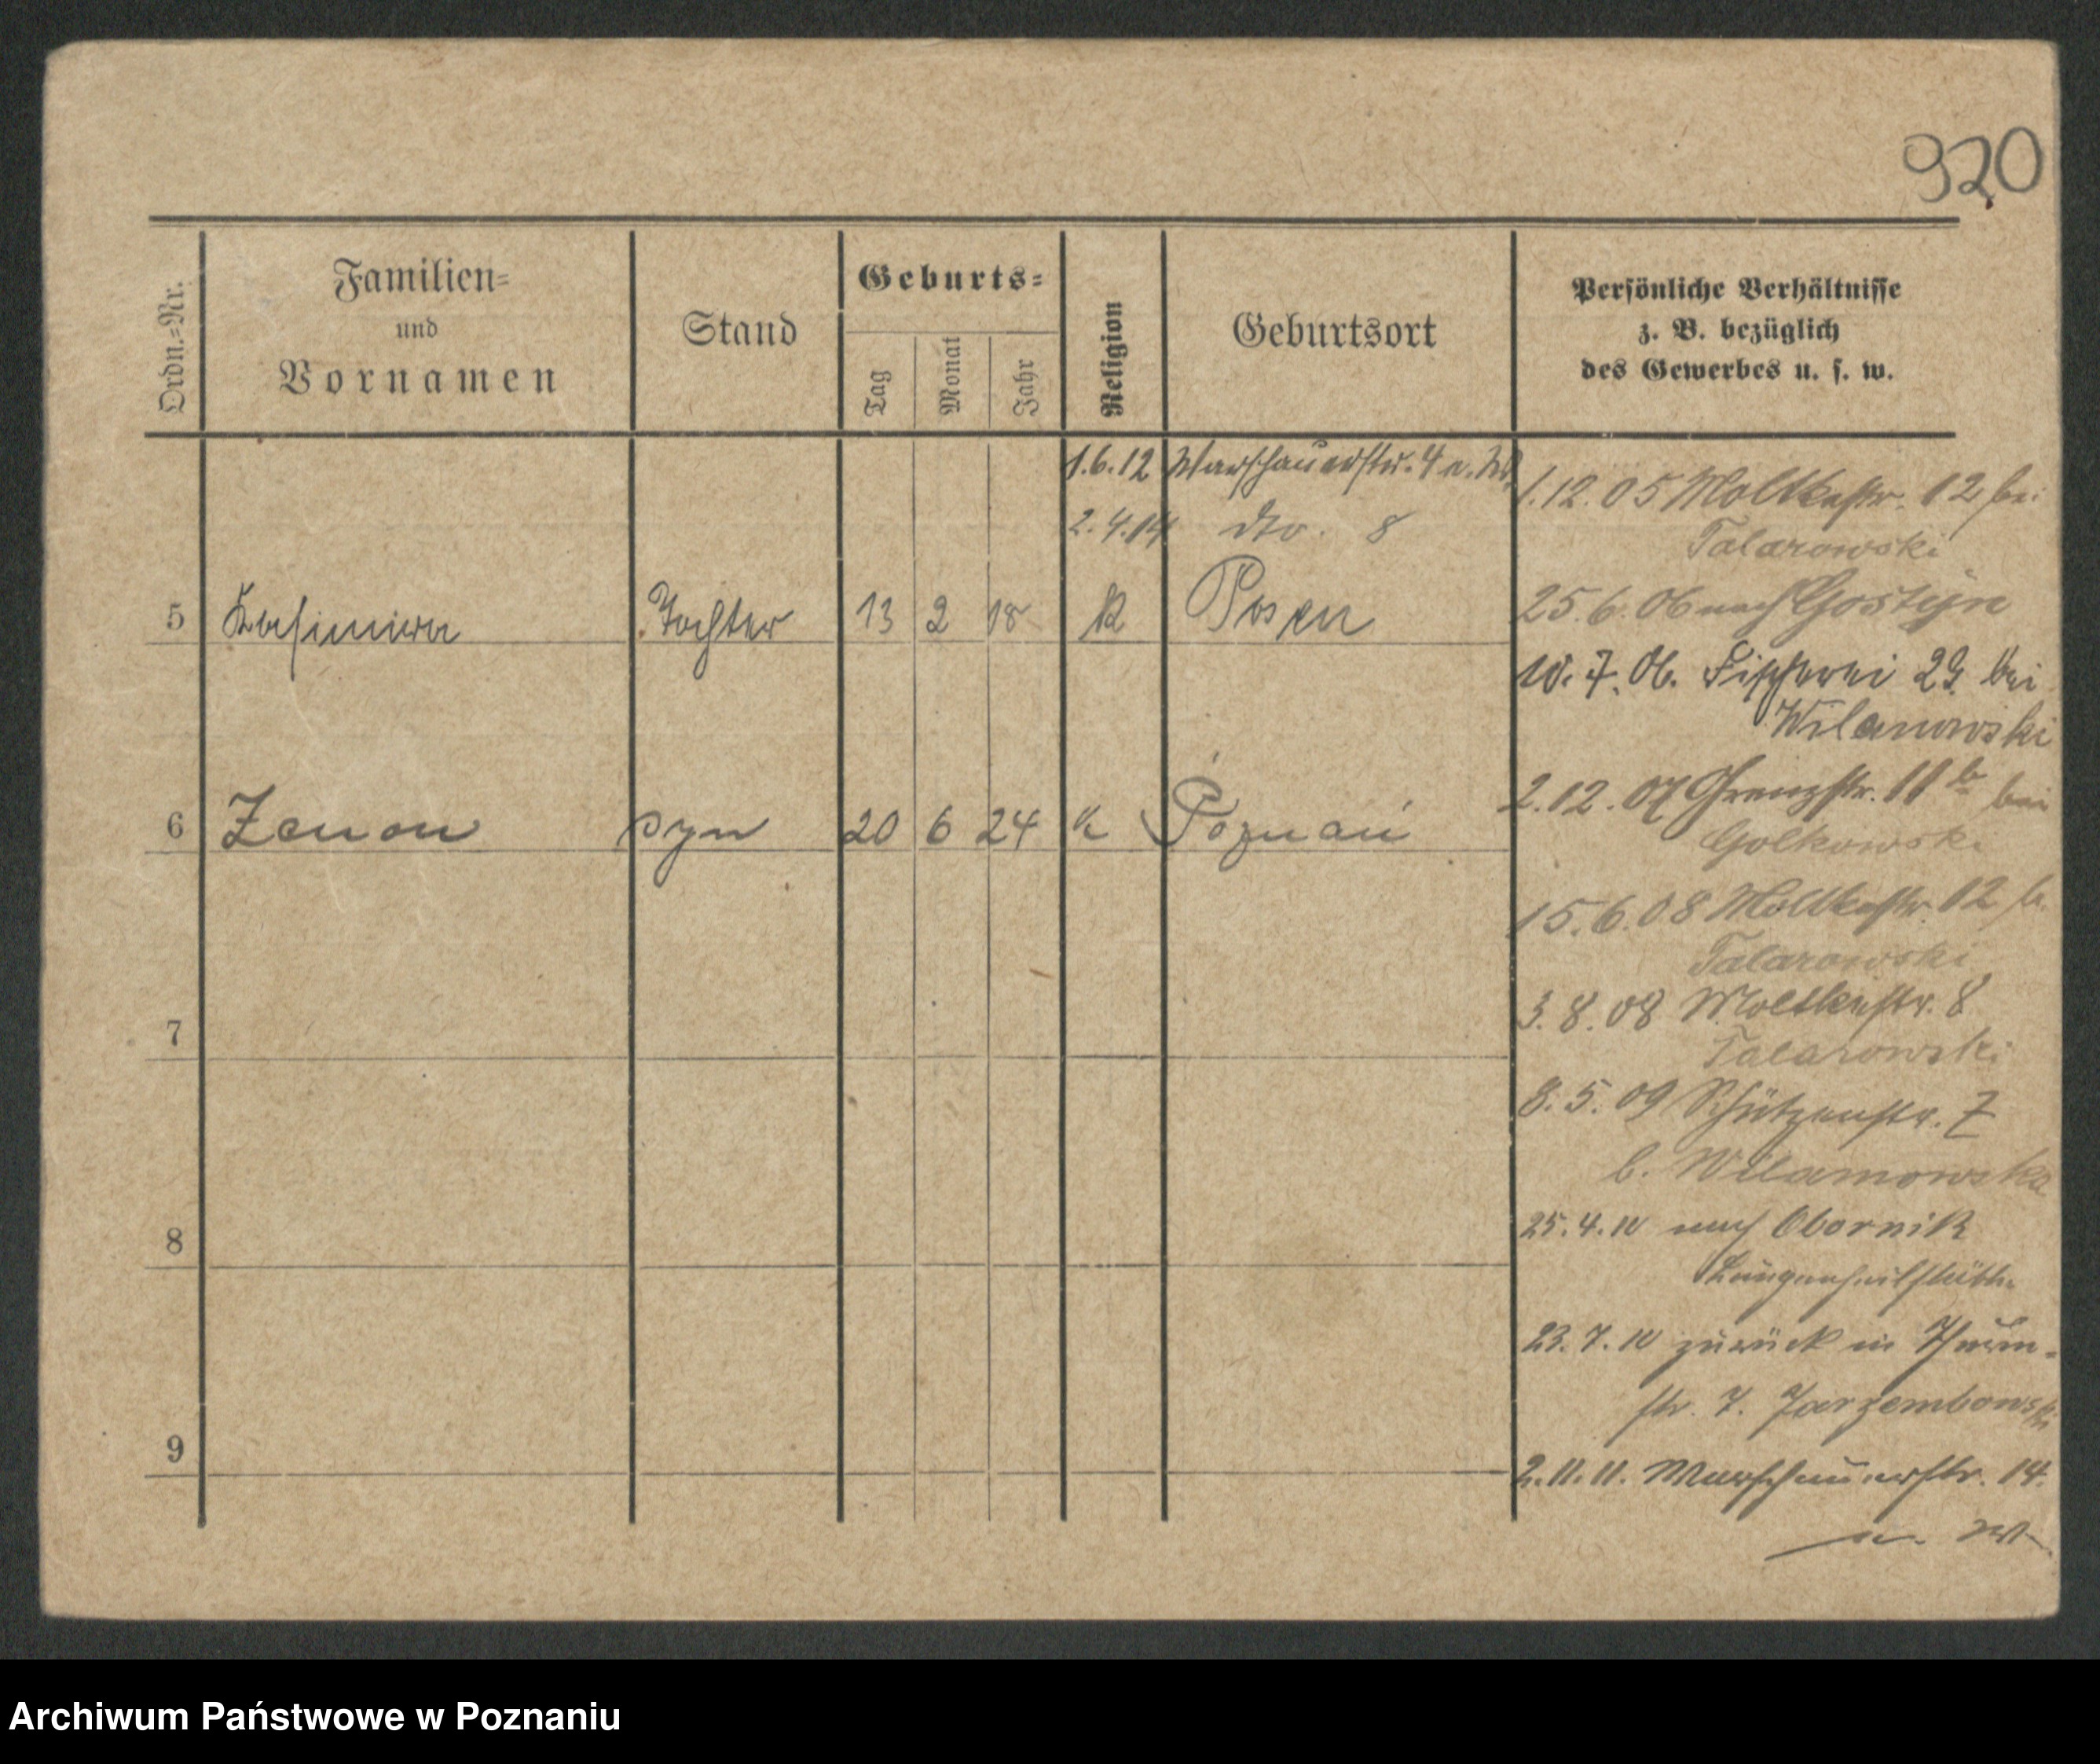 920
Ordn.-Nr.
Familien-
und
Vornamen
Stand
Geburts-
Tag
Monat
Jahr
Religion
Geburtsort
Persönliche Verhältnisse
z. B. bezüglich
des Gewerbes u. s. w.
1.6.12 Warschauerstr. 4 n. W.
2.4.14 dto. 8
5 Kasimira Tochter 13 2 18 K Posen
6 Zenon syn 20 6 24 K Poznań
7
8
9
1.12.05 Moltkestr. 12 bei
Talarowski
25.6.06 nach Gostyn
10.7.06. Fischerei 29. bei
Wilamowski
2.12.07 Grenzstr. 11b bei
Golkowski
15.6.08 Moltkestr. 12 b.
Talarowski
3.8.08 Moltkestr. 8
Talarowski
8.5.09 Schützenstr. 7
b. Wilamowska
25.4.10 nach Obornik
Lungenheilstätte
23.7.10 zurück in Thurm-
str. 7. Jarzembowski
2.11.11. Warschauerstr. 14.
n. W.
Archiwum Państwowe w Poznaniu